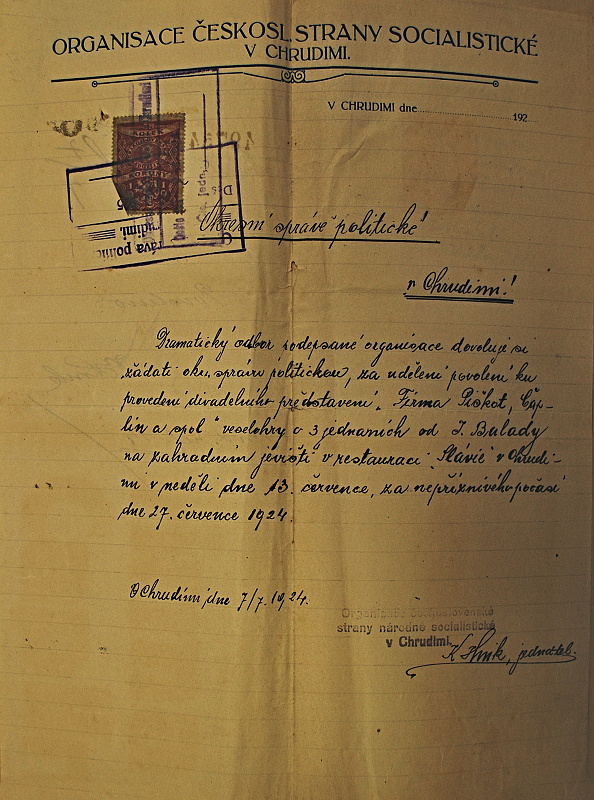 ORGANISACE ČESKOSL. STRANY SOCIALISTICKÉ
V CHRUDIMI.
V CHRUDIMI dne 192
Okresní správě politické!
v Chrudimi!
Dramatický odbor podepsané organisace dovoluje si
žádati okr. správu politickou, za udělení povolení ku
provedení divadelního představení „Firma Piškot, Čap-
lín a spol" veselohry o 3 jednáních od J. Balady
na zahradním jevišti v restauraci „Slavie" v Chrudi-
mi v neděli dne 13. července, za nepříznivého počasí
dne 27. července 1924.
V Chrudimi, dne 7/7. 1924.
Organisace československé
strany národně socialistické
v Chrudimi.
jednatel.